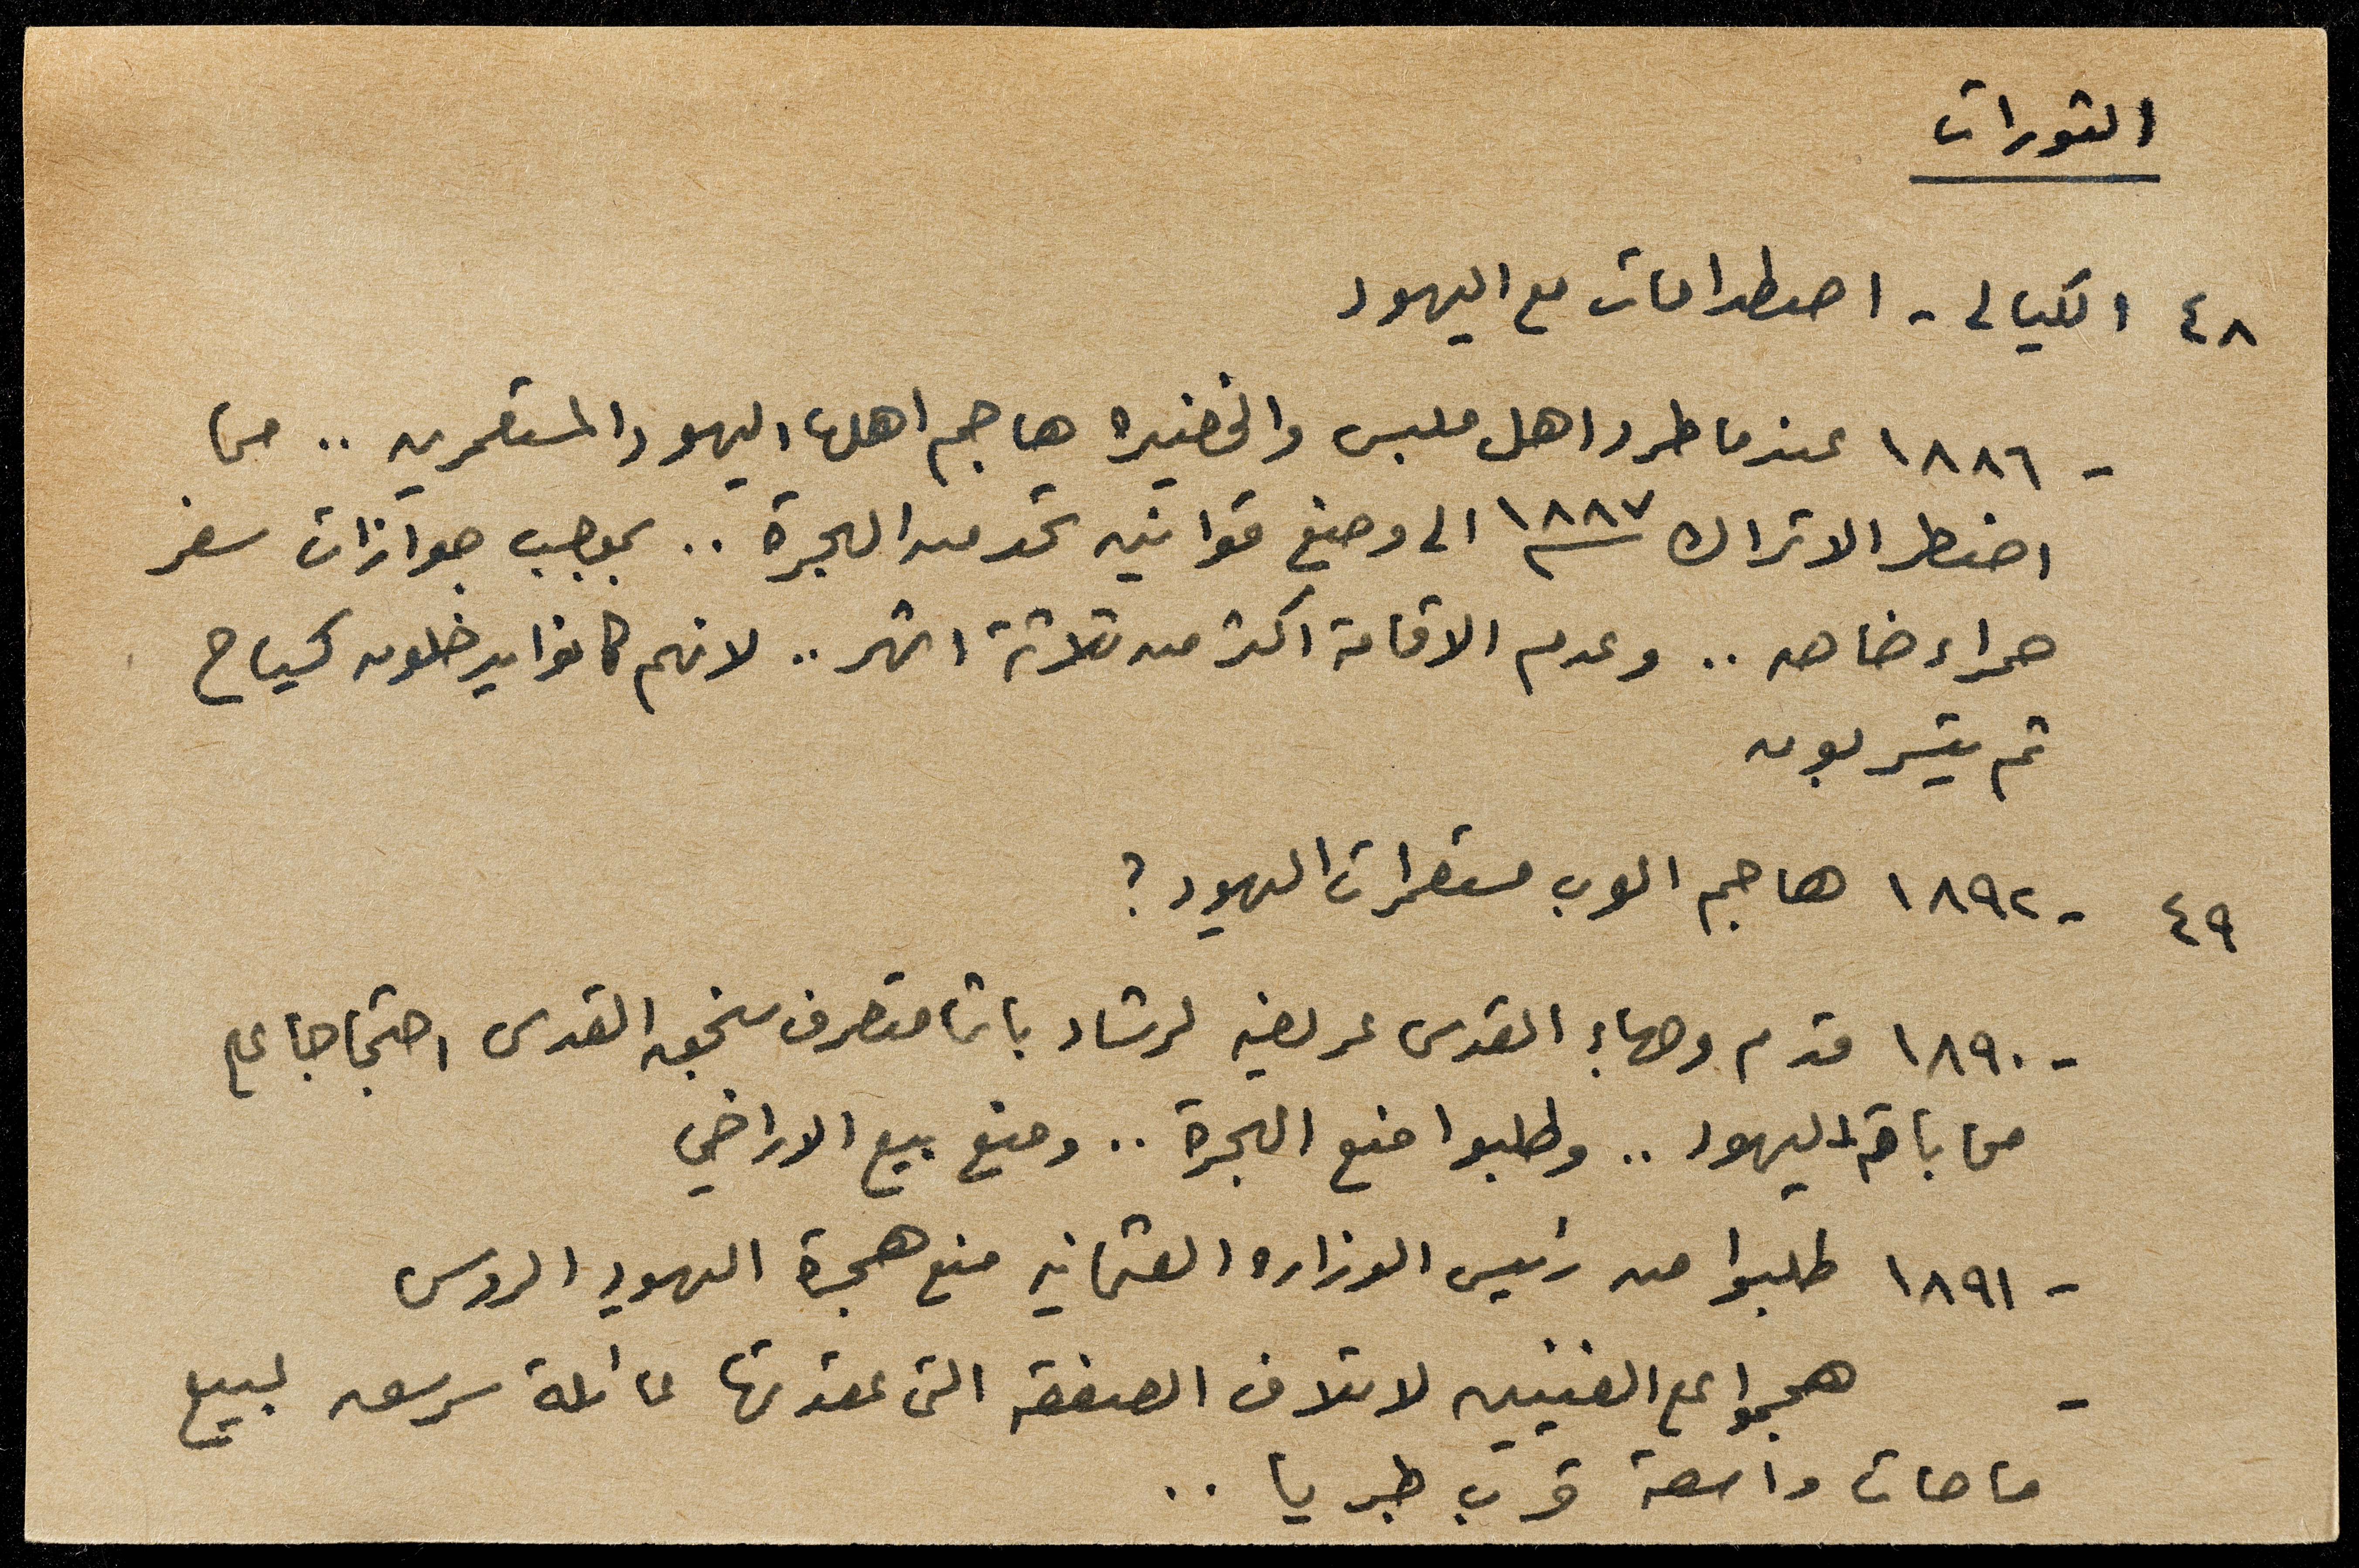 الثورات
٤٨ الكيالى - اصطدامات مع اليهود
- ١٨٨٦ عندما طرد اهل ملبس والخضيره هاجم اهلها اليهود المستعمرين .. مما
اضطر الاتراك ١٨٨٧ الى وضع قوانين تحد من الهجرة .. بموجب جوازات سفر
حمراء خاصه .. وعدم الاقامة اكثر من ثلاثة اشهر .. لانهم كانوا يدخلون كسياح
ثم يتسربون
٤٩ - ١٨٩٢ هاجم العرب مستعمرات اليهود ?
- ١٨٩٠ قدم وجهاء القدس عريضه لرشاد باشا متصرف سنجق القدس احتجاجا على
محاباته لليهود .. وطلبوا منع الهجرة .. ومنع بيع الاراضي
- ١٨٩١ طلبوا من رئيس الوزاره العثمانيه منع هجرة اليهود الروس
- هجموا على الفنيين لاتلاف الصفقه التى عقدتها عائلة سرسق لبيع
مساحات واسعة قرب طبريا ..